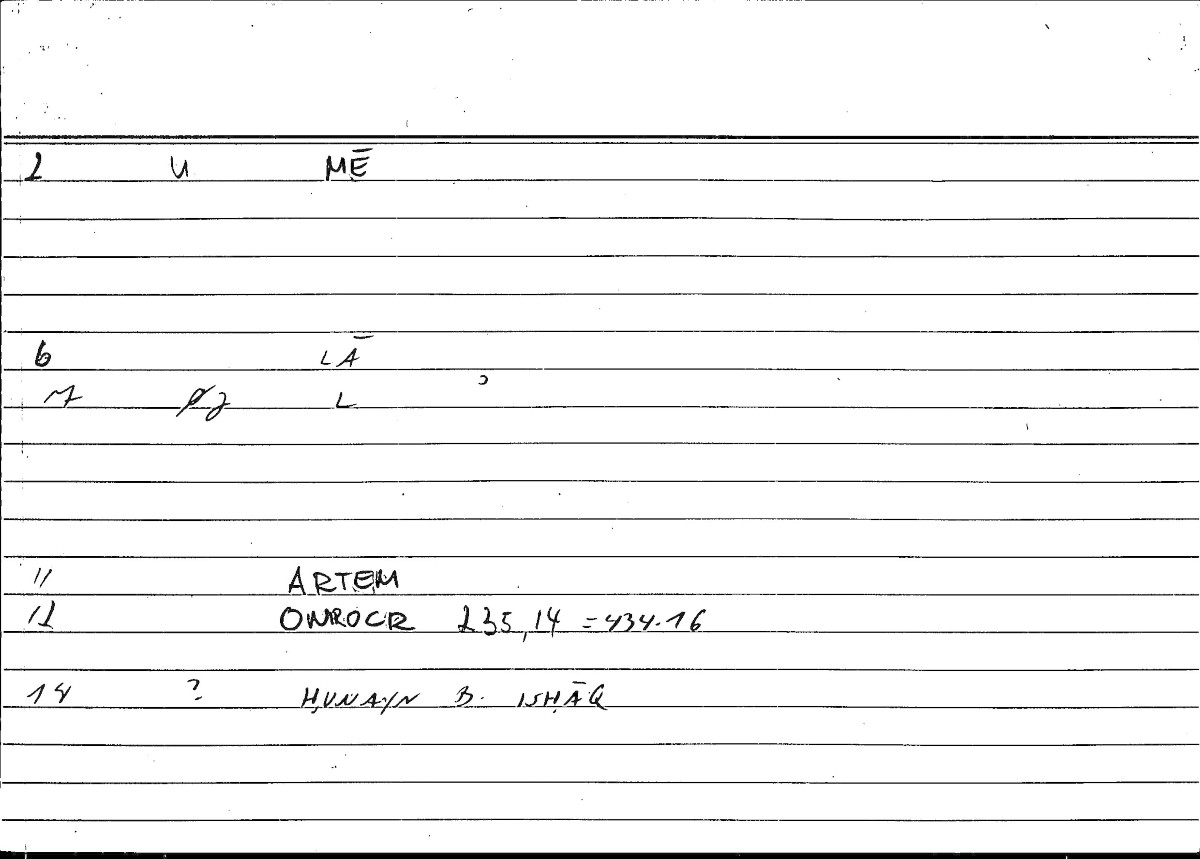 2 U MĒ
6 LĀ
7 L
11 ARTEM
12 ONIROCR 235,14 = 434.16
14 ? ḤUNAYN B. ISḤĀQ